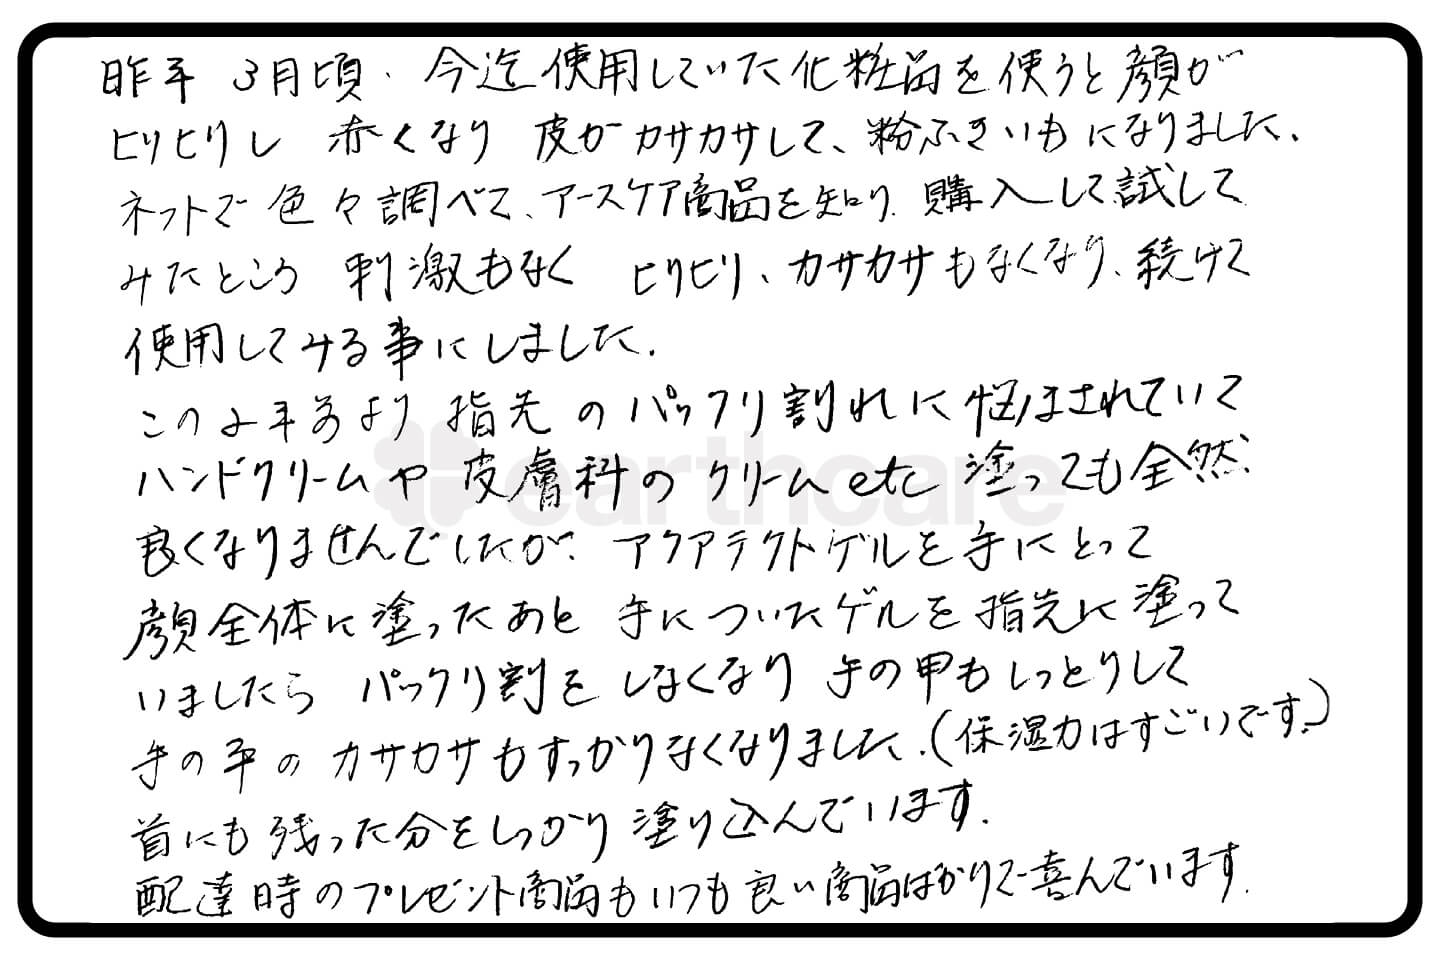 昨年 3月頃、今迄使用していた化粧品を使うと顔が
ヒリヒリし 赤くなり 皮がカサカサして、粉ふきいもになりました。
ネットで色々調べて、アースケア商品を知り、購入して試して
みたところ 刺激もなく ヒリヒリ、カサカサもなくなり、続けて
使用してみる事にしました。
この2年前より 指先のパックリ割れに悩まされていて
ハンドクリームや皮膚科のクリームetc 塗っても全然
良くなりませんでしたが、アクアテクトゲルを手にとって
顔全体に塗ったあと 手についたゲルを指先に塗って
いましたら パックリ割をしなくなり 手の甲もしっとりして
手の平のカサカサもすっかりなくなりました。(保湿力はすごいです。)
首にも残った分をしっかり塗り込んでいます。
配達時のプレゼント商品もいつも良い商品ばかりで喜んでいます。
earthcare